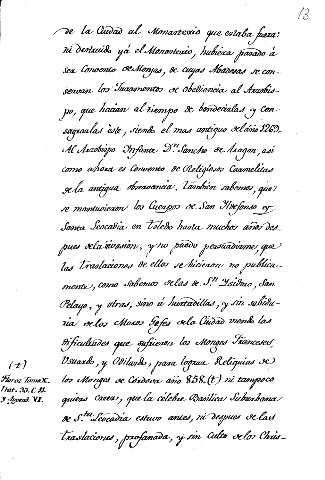 13
de la Ciudad al Monasterio que estaba fuera:
ni destruido yá el Monasterio, hubiera pasado á
ser Convento de Monjas, de cuyas Abadesas se con-
servan los Juramentos de obediencia al Arzobis-
po, que hacian al tiempo de bendecirlas y con-
sagrarlas este, siendo el mas antiguo del año
Al Arzobispo Infante Dn. Sancho de Aragon, asi
como ahora es Convento de Religiosos Carmelitas
de la antigua observancia. Tambien sabemos, que
se mantuvieron los Cuerpos de San Ildefonso y
Santa Leocadia en toledo hasta muchos años des-
pues de la invasion, y no puedo persuadirme que
las traslaciones de ellos se hicieron no publica-
mente, como sabemos de las de Sn. Ysidro, San
Pelayo, y otras, sino á hurtadillas, y sin sabidu-
ria de los Moros Gefes de la Ciudad
dificultades que sufrieron los Monges Franceses,
Usuardo, y Odilardo, para lograr Reliquias de
los Monges de Cordova año 858. (t) ni tampoco
quiero creer, que la célebre Basilica Suburbana
de Sta. Leocadia estuvo antes, ni despues de las
traslaciones, profanada, y sin culto de los Chris-
(t)
Florez Tomo X.
Trat. 33. C. 11.
y Apend. VI.